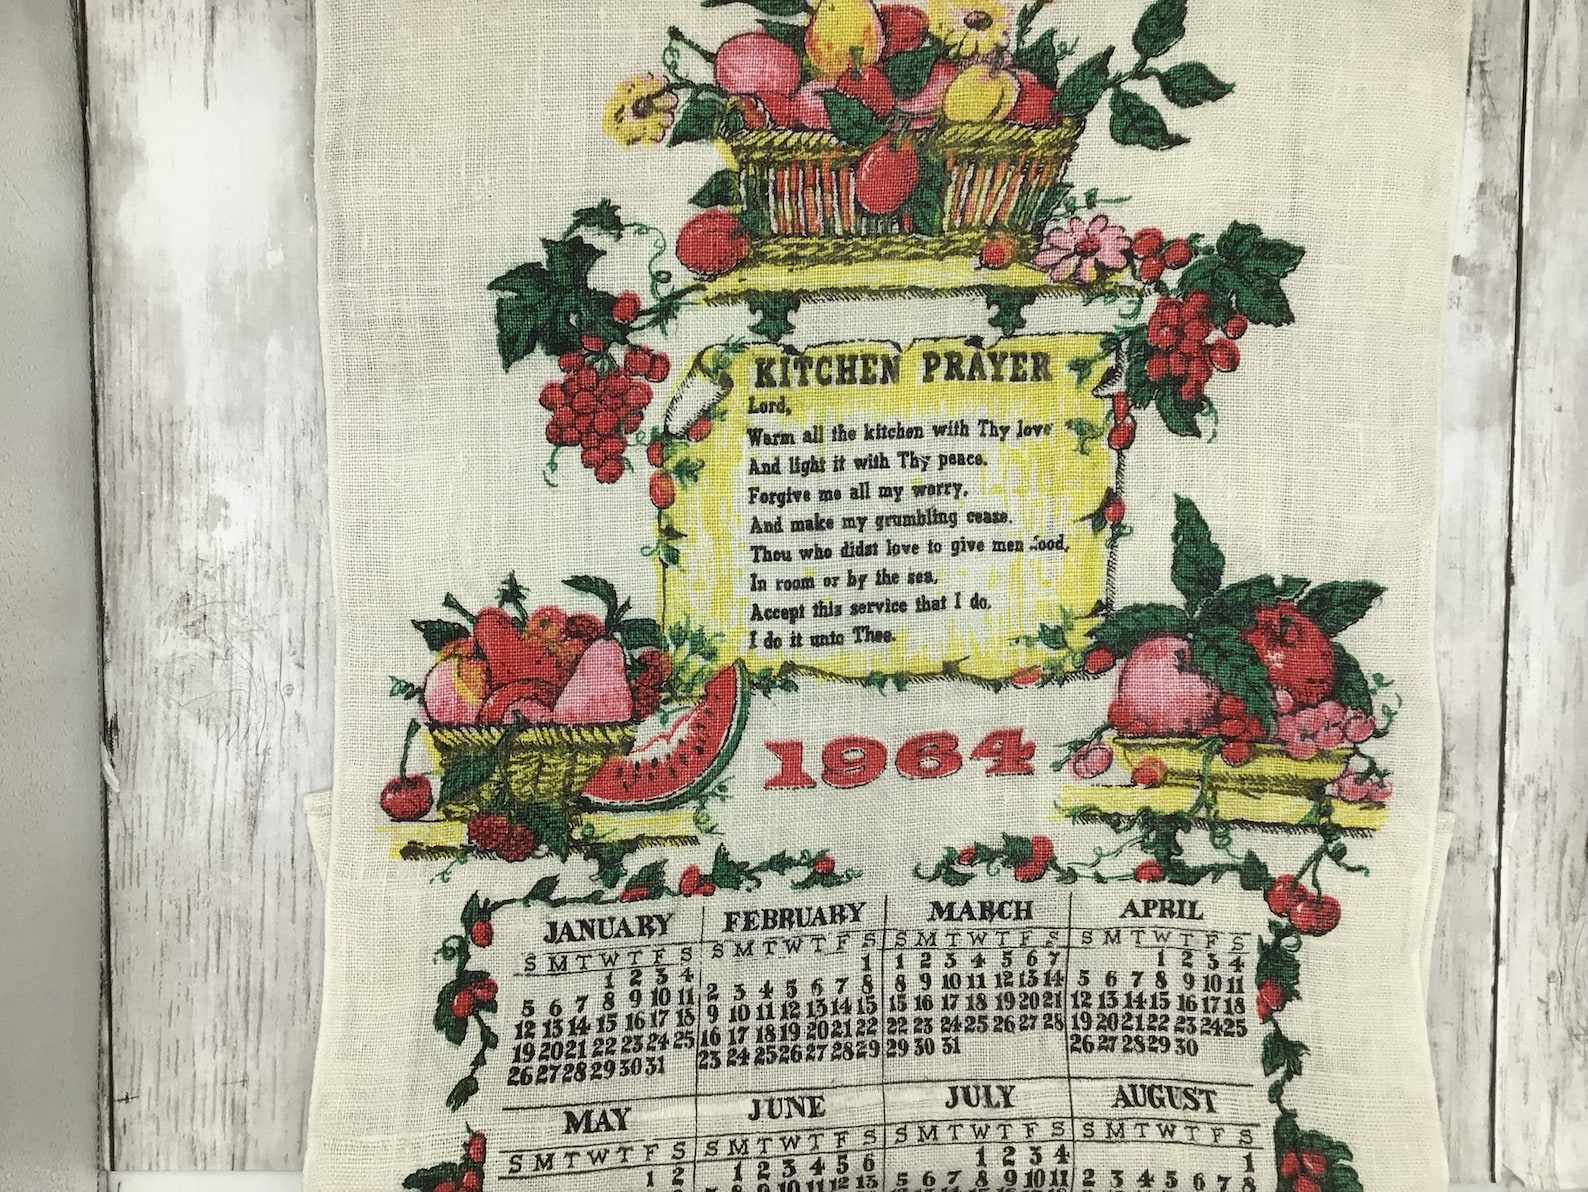 KITCHEN PRAYER
Lord,
Warm all the kitchen with Thy love
And light it with Thy peace.
Forgive me all my worry,
And make my grumbling cease.
Thou who didst love to give men food,
In room or by the sea,
Accept this service that I do,
I do it unto Thee.
1964
JANUARY
S M T W T F S
1 2 3 4
5 6 7 8 9 10 11
12 13 14 15 16 17 18
19 20 21 22 23 24 25
26 27 28 29 30 31
FEBRUARY
S M T W T F S
1
2 3 4 5 6 7 8
9 10 11 12 13 14 15
16 17 18 19 20 21 22
23 24 25 26 27 28 29
MARCH
S M T W T F S
1 2 3 4 5 6 7
8 9 10 11 12 13 14
15 16 17 18 19 20 21
22 23 24 25 26 27 28
29 30 31
APRIL
S M T W T F S
1 2 3 4
5 6 7 8 9 10 11
12 13 14 15 16 17 18
19 20 21 22 23 24 25
26 27 28 29 30
MAY
S M T W T F S
1 2
JUNE
S M T W T F S
1 2 3 4 5 6
8 9 10 11 12 13
JULY
S M T W T F S
1 2 3 4
5 6 7 8 9 10 11
AUGUST
S M T W T F S
1
2 3 4 5 6 7 8